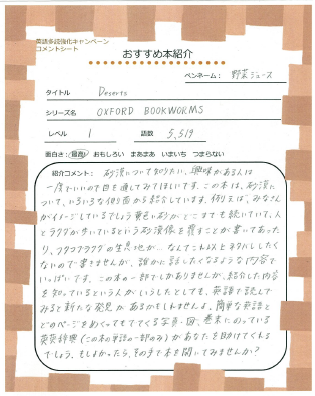 英語多読強化キャンペーン
コメントシート
おすすめ本紹介
ペンネーム： 野菜ジュース
タイトル Deserts
シリーズ名 OXFORD BOOKWORMS
レベル 1 語数 5,519
面白さ： 最高 おもしろい まあまあ いまいち つまらない
紹介コメント： 砂漠について知りたい、興味がある人は
一度でいいので目を通してみてほしいです。この本は、砂漠に
ついて、いろいろな側面から紹介しています。例えば、みなさん
がイメージしているでしょう黄色い砂がどこまでも続いていて、人
とラクダが歩いているという砂漠像を覆すことが書いてあった
り、フタコブラクダの生息地が…なんてこれ以上ネタバレしたく
ないので書きませんが、誰かに話したくなるような内容で
いっぱいです。この本の一部でしかありませんが、紹介した内容
を知っているという人がいらしたとしても、英語で読んで
みると新たな発見があるかもしれませんよ。簡単な英語と
どのページをめくってもでてくる写真・図、巻末にのっている
英英辞典（この本の単語の一部のみ）があなたを助けてくれる
でしょう。もしよかったら、その手で本を開いてみませんか？